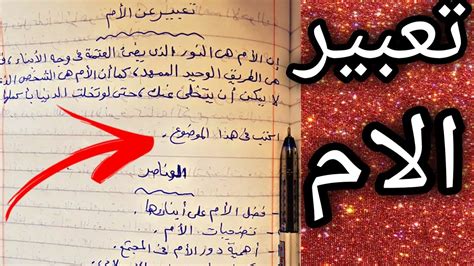 تعبير عن الأم
إن الأم هي النور الذي يضئ العتمة في وجه الأبناء، فـ
هي الطريق الوحيد الممهد، كما أن الأم هي الشخص الذي
لا يمكن أن يتخلى عنك، حتى لو تخلت الدنيا بأكملها
اكتب في هذا الموضوع.
العناصر
- فضل الأم على أبنائها.
- تضحيات الأم.
- أهمية دور الأم في المجتمع.
تعبير
الام